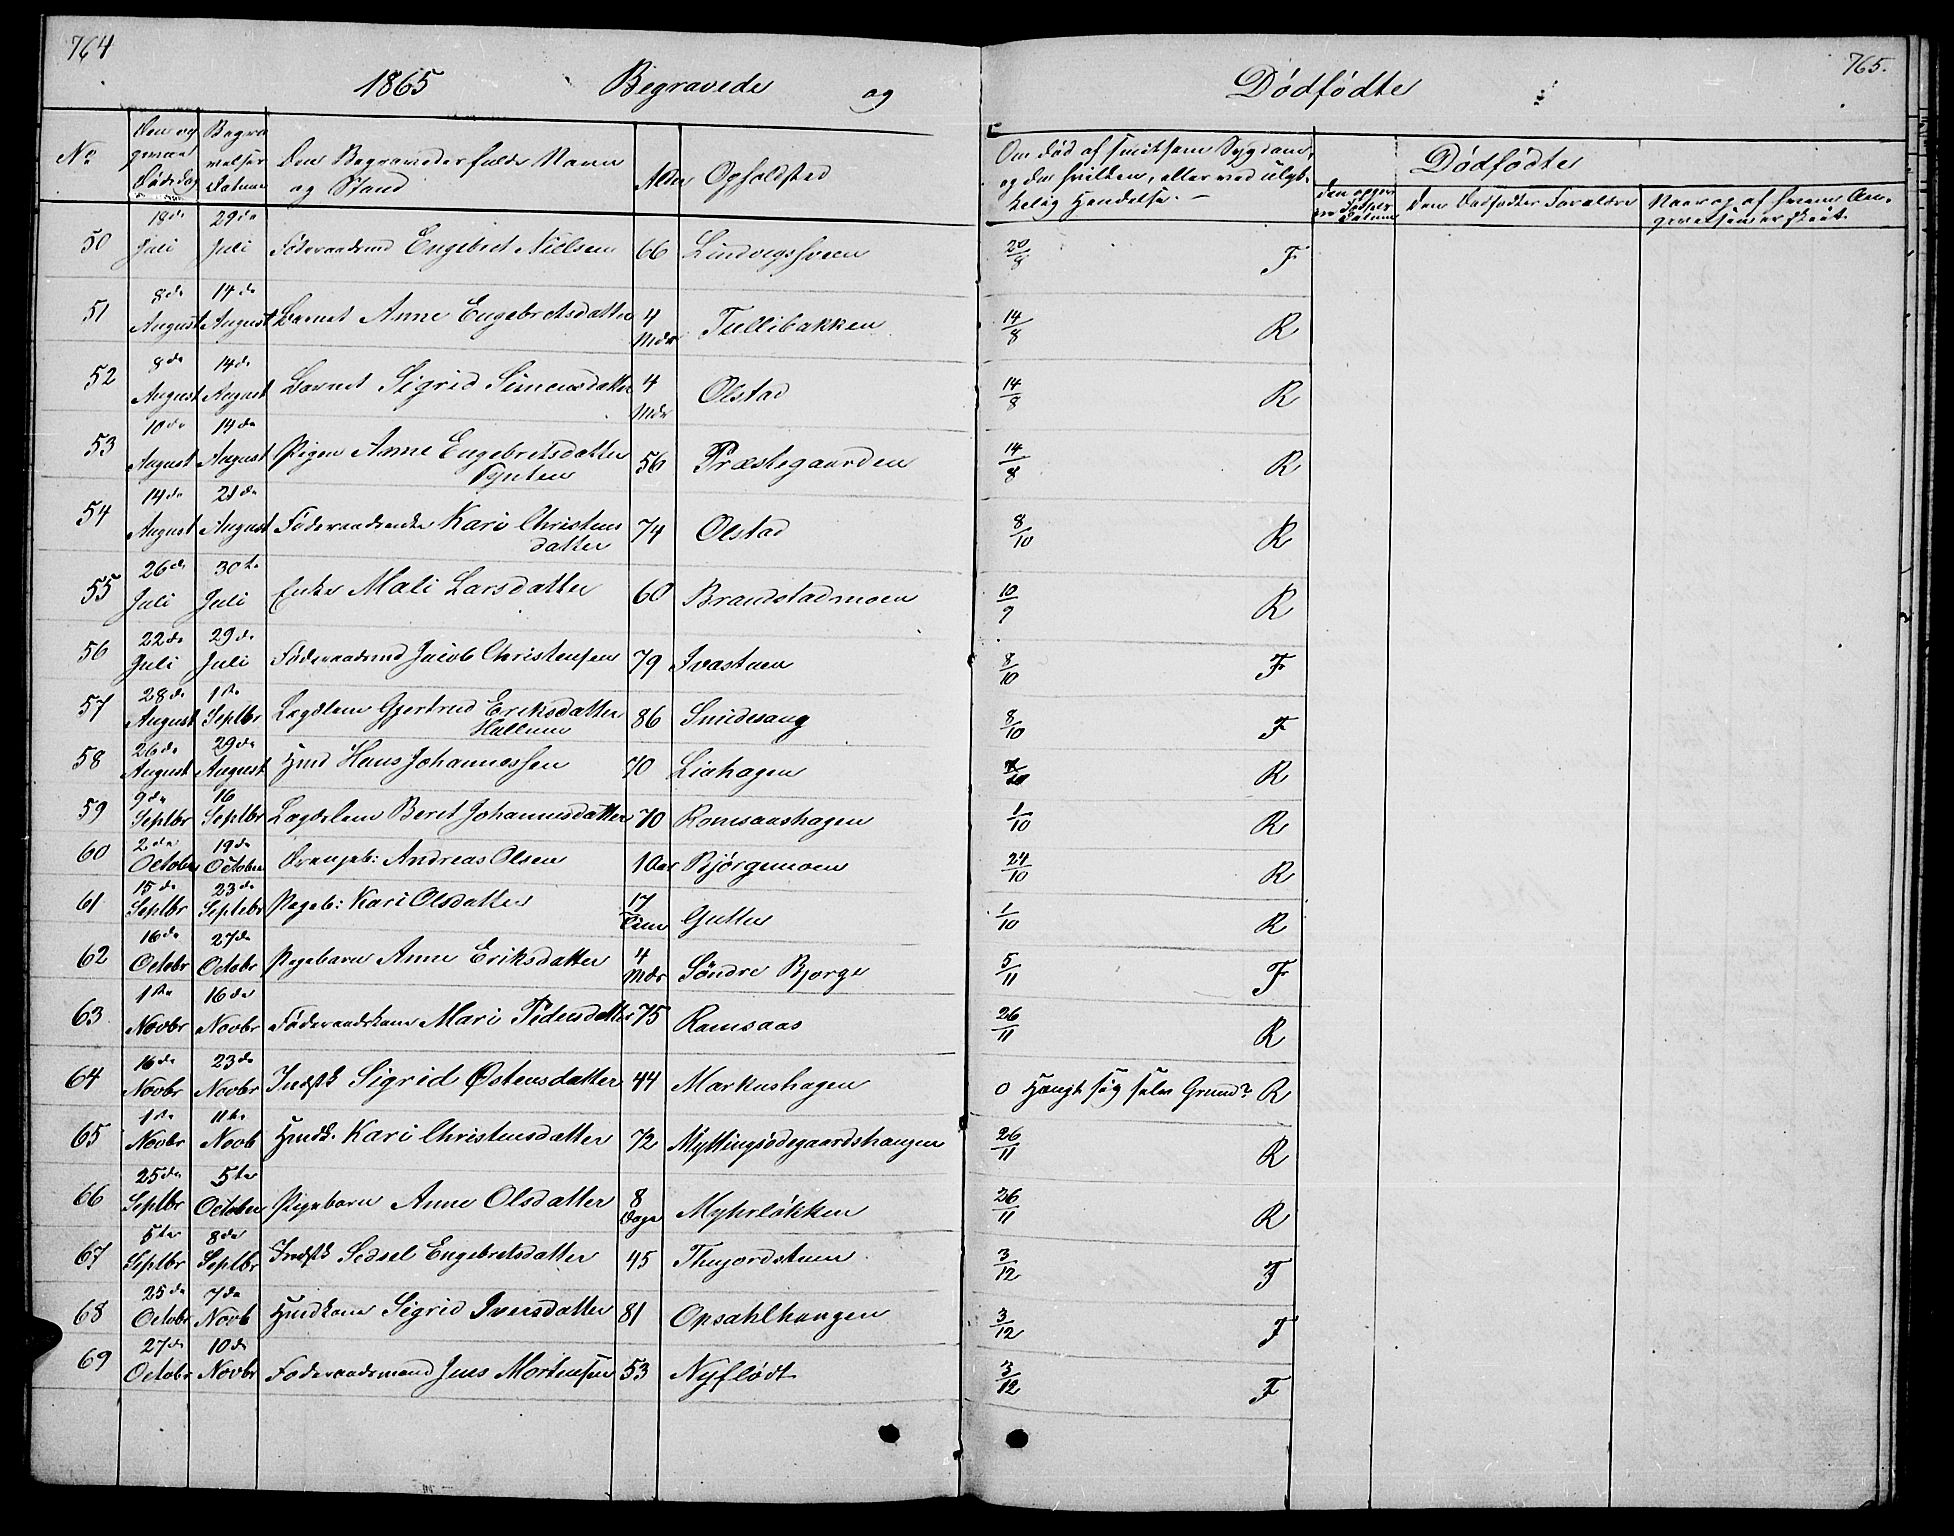 764
1865 Begravede og
Dødfødte
765.
No
Den og Begra
melser
Datum
Den Begravedes fulde Navn
og Stand
Alder
Opholdsted
Om død af smitsom Sygdom,
og da hvilken, eller ved ulyk-
kelig Hendelse.
Dødfødte
Den Dødfødtes Forældre
50 19de Juli 29de Juli Føderaadsmd Engebret Nielsen 66 Lindvigshveen 20/8 F
51 8de August 14de August Barnet Anne Engebretsdatter 4 Mdr Tullibakken 14/8 R
52 8de August 14de August Barnet Sigrid Simensdatter 4 Mdr Olstad 14/8 R
53 10de August 14de August Pigen Anne Engebretsdatter 56 Præstegaarden 14/8 R
54 14de August 21de August Føderaadsenke Kari Christens
datter 74 Olstad 8/10 R
55 26de Juli 30te Juli Enke Mali Larsdatter 60 Brandstadmoen 10/9 R
56 22de Juli 29de Juli Føderaadsmd Jacob Christensen 79 Ivastuen 8/10 F
57 28de August 1ste Septbr Lægdslem Gjertrud Eriksdatter
Hallum 86 Smidesang 8/10 F
58 26de August 29de August Hmd Hans Johannessen 70 Liahagen R
59 9de Septbr 16 Septbr Lægdslem Beret Johannesdatter 70 Romsaashagen 1/10 R
60 2den October 19de October Drengeb: Andreas Olsen 1 Aar Bjørgemoen 24/10 R
61 15de Septbr 23de Septebr Pigeb: Kari Olsdatter 17 Gutter 1/10 R
62 16de Octobr 27de Octobr Pigebarn Anne Eriksdatter 4 Mdr Søndre Bjørge 5/11 F
63 1ste Novbr 16de Novbr Føderaadskone Mari Pedersdatter 75 Romsaas 26/11 R
64 16de Novbr 23de Novbr Indstk Sigrid Østensdatter 44 Markushagen 0 Hængt sig selv Grund? R
65 1ste Novbr 11te Novb Hmdk. Kari Christensdatter 72 Myttingsødegaardshaugen 26/11 R
66 25de Septbr 5te October Pigebarn Anne Olsdatter 8 Dage Myhrløkken 26/11 R
67 5te Septbr 8de Septbr Indstk Sedsel Engebretsdatter 45 Thujordstuen 3/12 F
68 25de Octobr 7de Novb Hmdkone Sigrid Iversdatter 81 Opsahlhaugen 3/12 F
69 27de Octobr 10de Novbr Føderaadsmand Jens Mortensen 53 Nyflødt 3/12 F